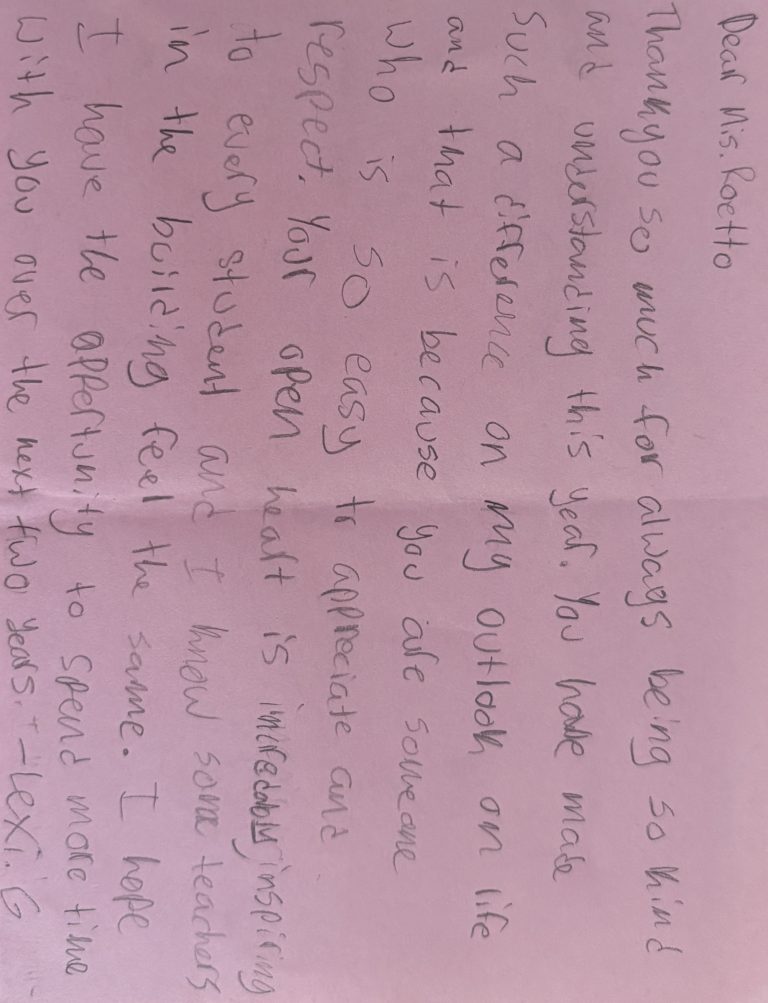 Dear Ms. Roetto
Thankyou so much for always being so kind
and understanding this year. You have made
such a difference on my outlook on life
and that is because you are someone
who is so easy to appreciate and
respect. Your open heart is incredably inspiring
to every student and I know some teachers
in the building feel the same. I hope
I have the appertunity to spend more time
with you over the next two years. -Lexi. G